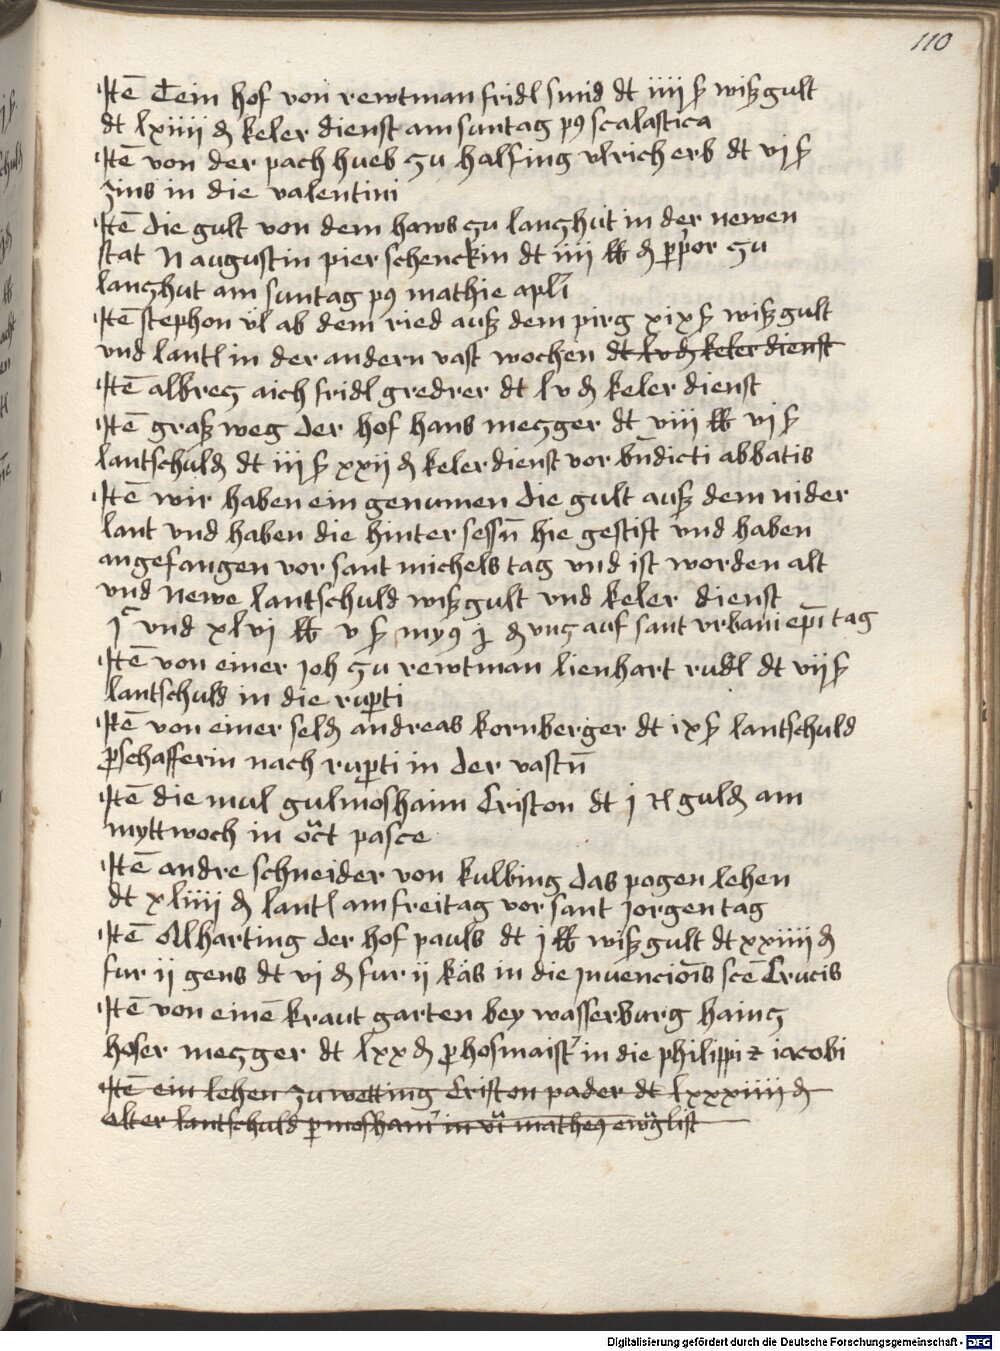 110
Itē Ꞇein hof von rewtman fridl smid dt iiii ẞ wißgult
dt lxiiii ₰ keler dienst am suntag pꝰ scalastica
Itē von der pach hueb zu halfing vlrich erb dt vj ẞ
zins in die valentini
Itē die gult von dem haws zu lanczhut in der newen
stat N augustin pier schenckin dt iiii ℔ ₰ ꝑ por zu
lanczhut am suntag pꝰ mathie apl̄i
Itē stephon v̈l ab dem ried auß dem pirg xix ẞ wißgult
vnd lantl in der andern vast wochen dt lv ₰ keler dienst
Itē albrecz aich fridl gredrer dt lv ₰ keler dienst
Itē graßweg der hof hans meczger dt viii ℔ vj ẞ
lantschuld dt iij ẞ xxij ₰ keler dienst vor bn̄dicti abbatis
Itē wir haben ein genumen die gult auß dem nider
lant vnd haben die hinter sessn̄ hie gestift vnd haben
angefangen vor sant michels tag vnd ist worden alt
vnd newe lantschuld wißgult vnd keler dienst
jᶜ vnd xlvj ℔ v ẞ mynꝰ j ₰ vncz auf sant vrbani ep̄i tag
Itē von einer joh zu rewtman lienhart rudl dt vij ẞ
lantschuld in die rupti
Itē von einer seld andreas kornberger dt ix ẞ lantschuld
ꝑ schafferin nach ruꝑti in der vastn̄
Itē die mul gulmoshaim Criston dt j rl guld am
myttwoch in oct̄ pasce
Itē andre schneider von kulbing das pogen lehen
dt xliiii ₰ lantl am freitag vor sant jorgen tag
Itē Alharting der hof pauls dt j ℔ wißgult dt xxiiii ₰
fur ij gens dt vj ₰ fur ij käs in die jnuencio͞is sc̄e Crucis
Itē von einē kraut garten bey wasserburg haincz
hofer meczger dt lxx ₰ ꝑ hofmaistʳ in die philippi ⁊ iacobi
Itē ein lehen zu wetting Criston pader dt lxxxiiii ₰
alter lantschuld ꝑ moshamʳ in vi͞ mathei ewāglist
Digitalisierung gefördert durch die Deutsche Forschungsgemeinschaft - DFG